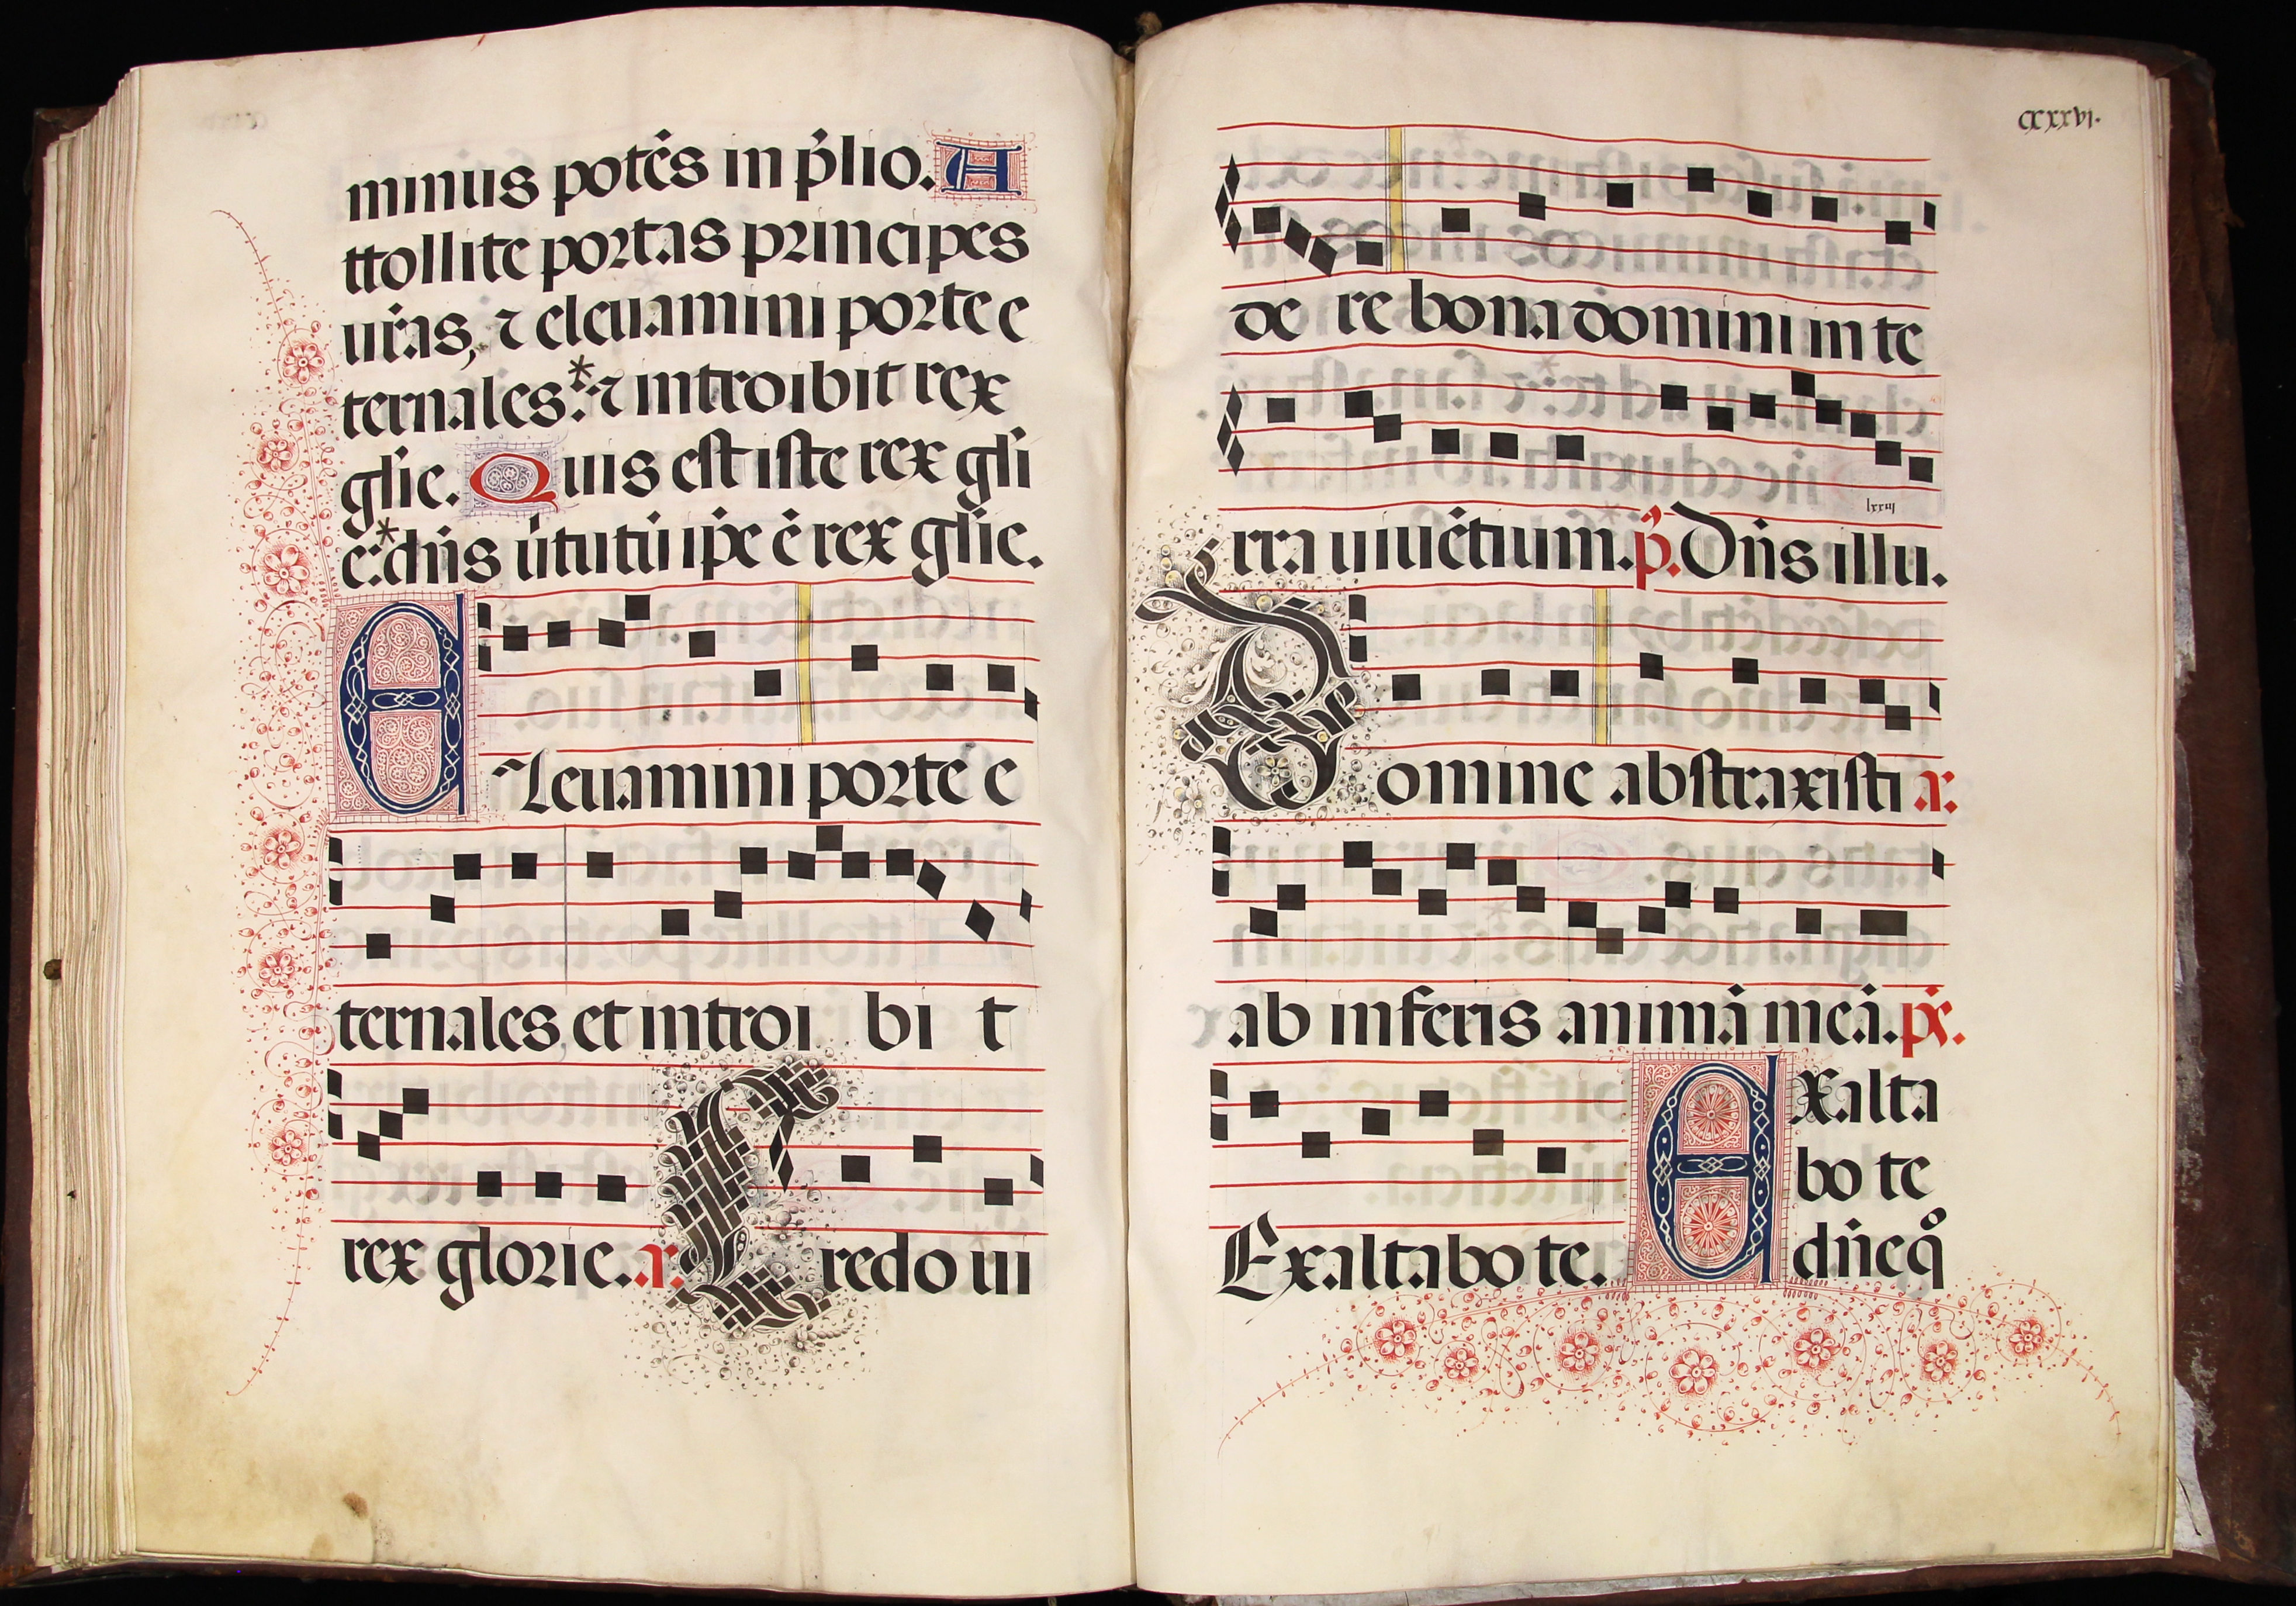 minus potẽs in p̃lio. A
ttollite portas principes
ur̃as, ⁊ eleuamini porte e
ternales:* ⁊ introibit rex
gl̃ie. Quis est iste rex gl̃i
e:* dñs ũtutũ ip̃e ẽ rex gl̃ie.
Eleuamini porte e
ternales, et introi bi t
rex glorie. a. Credo ui
CXXXVI.
de re bona domini in te
lxxiij
rra uiuẽtium. p̃. Dñs illu.
Domine abstraxisti a.
ab inferis animã meã. ps̃.
Exaltabo te. Exalta
bo te
dñe qͦ